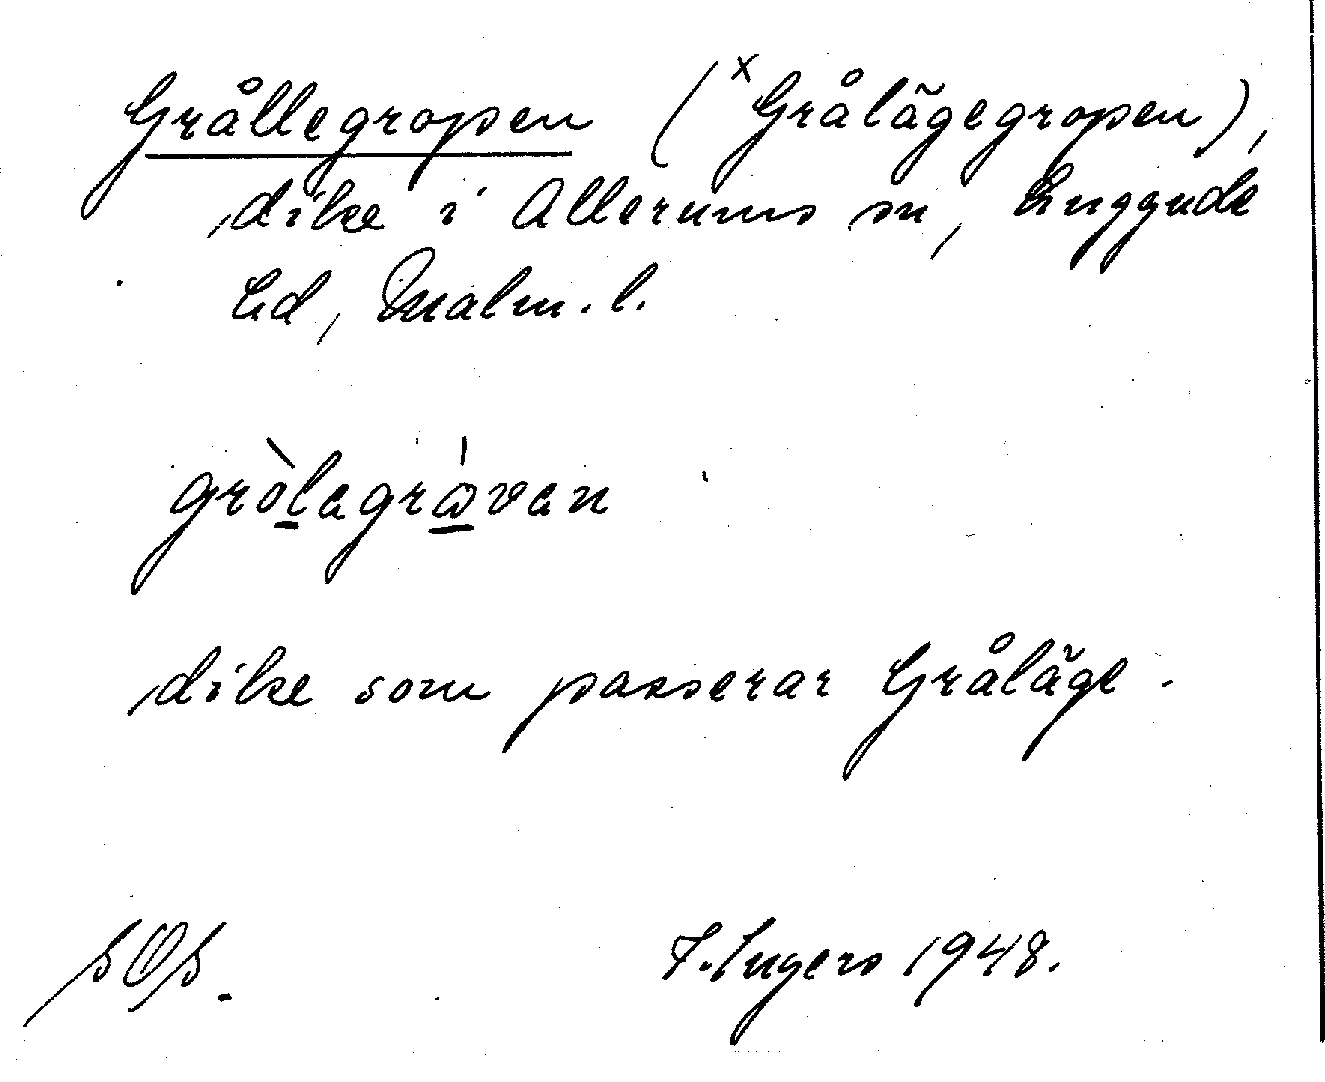 Grållegropen (ˣGrålägegropen),
dike i Allerums sn, Luggude
hd, Malm. l.
gròlagråvan
dike som passerar Gråläge.
SOS.
F. Ingers 1948.